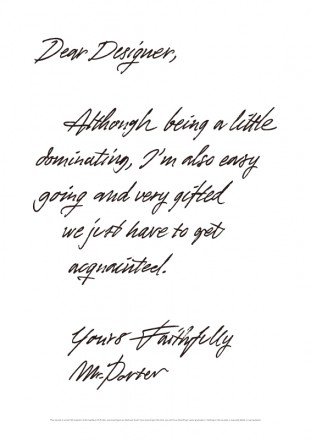 Dear Designer,
Although being a little
dominating, I'm also easy
going and very gifted
we just have to get
acquainted.
Yours Faithfully
Mr. Porter